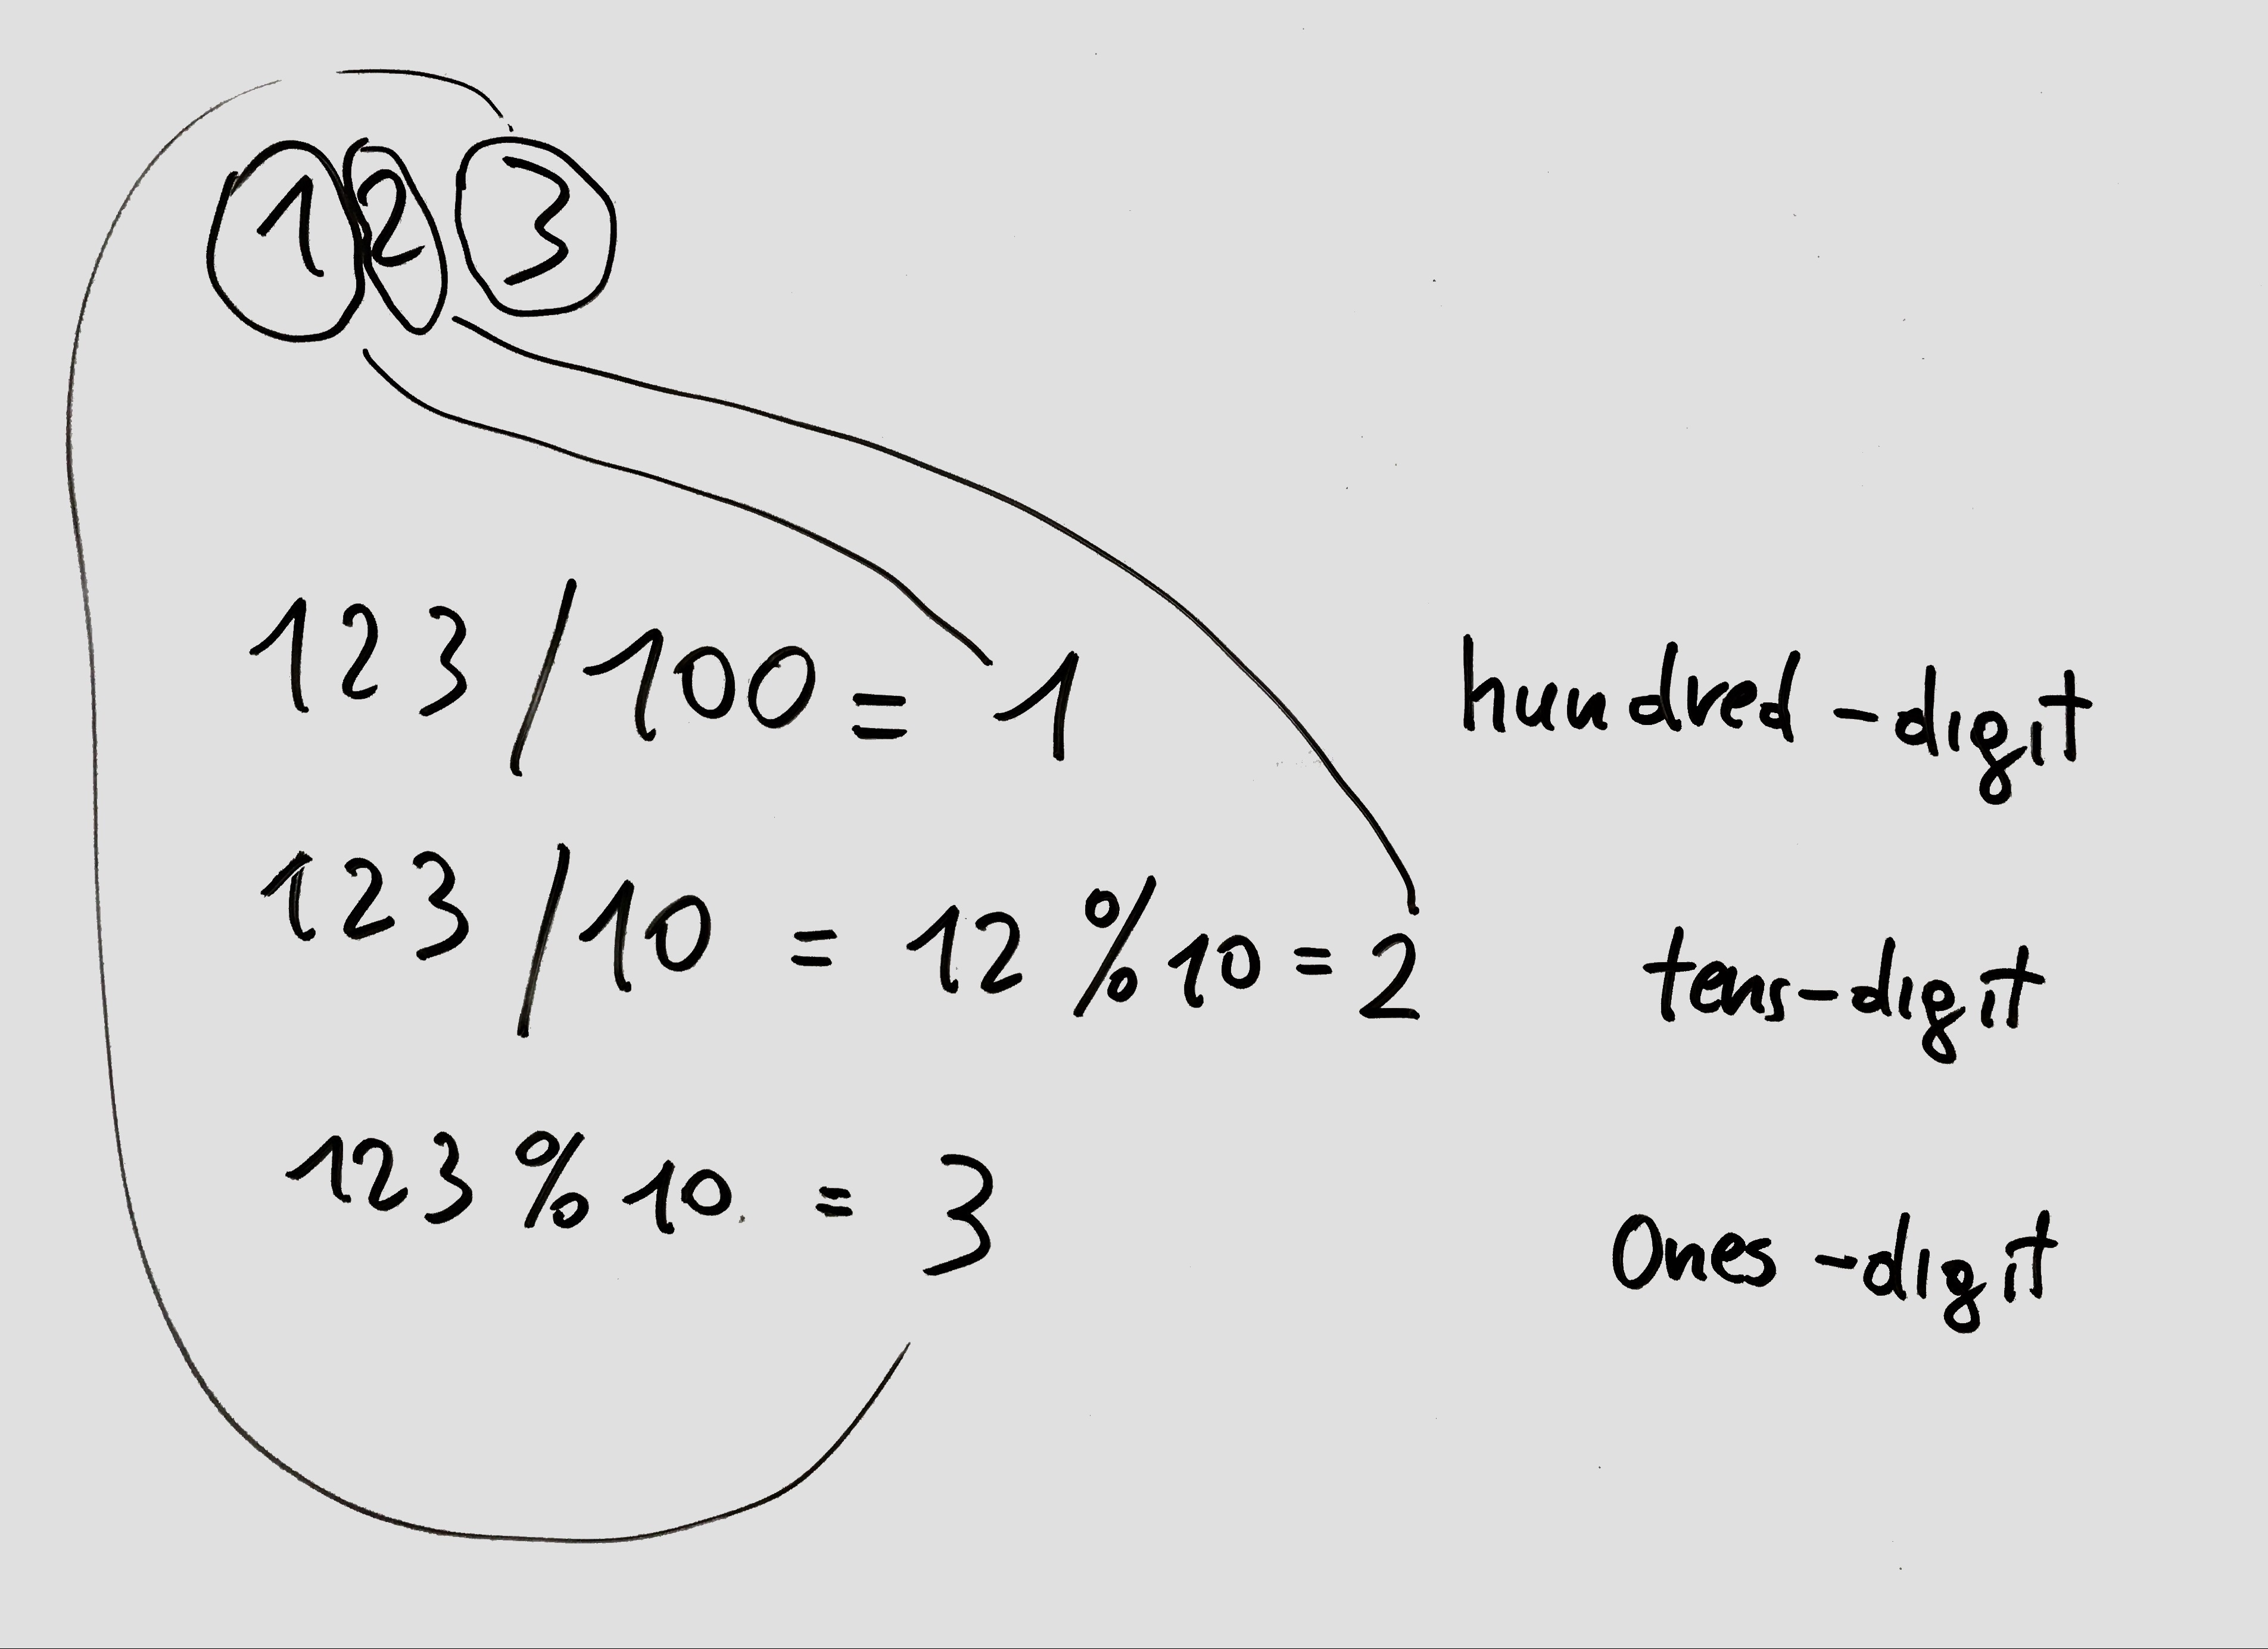 123
123/100 = 1 hundred-digit
123/10 = 12%10=2 tens-digit
123%10 = 3 Ones-digit